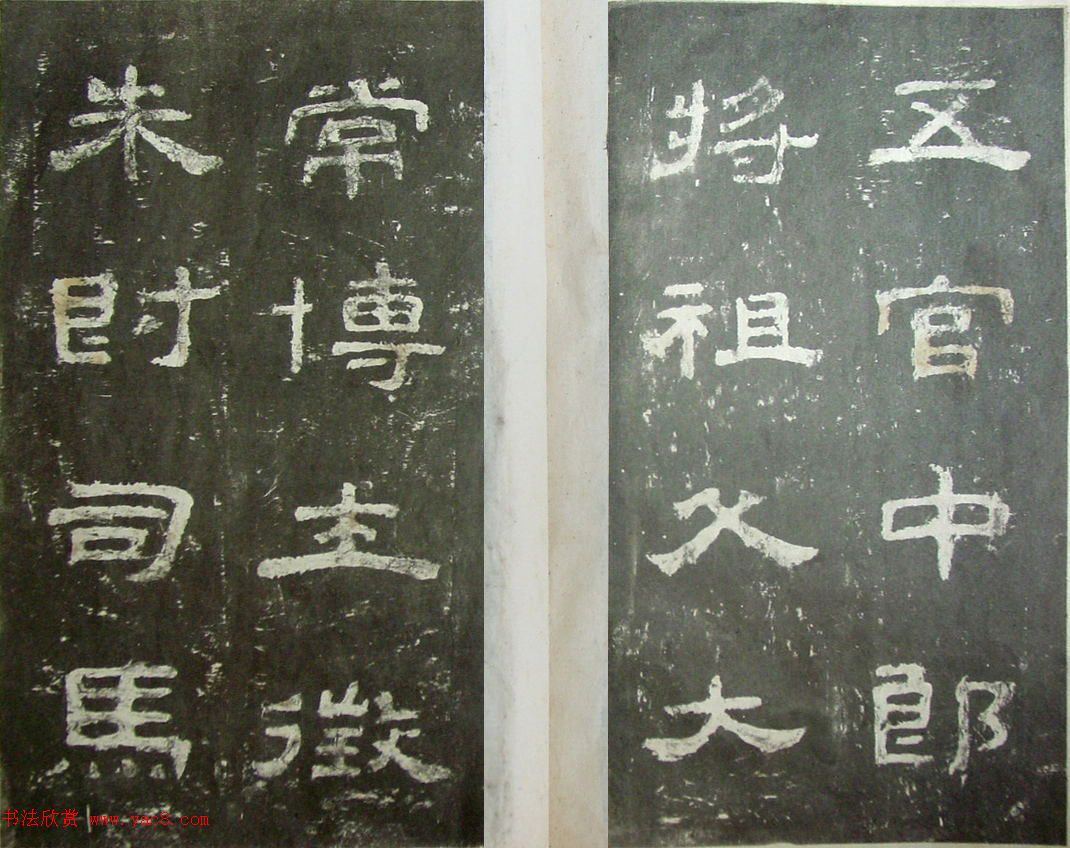 五官中郎
將祖父大
常博士徵
朱爵司馬
书法欣赏 www.yac8.com